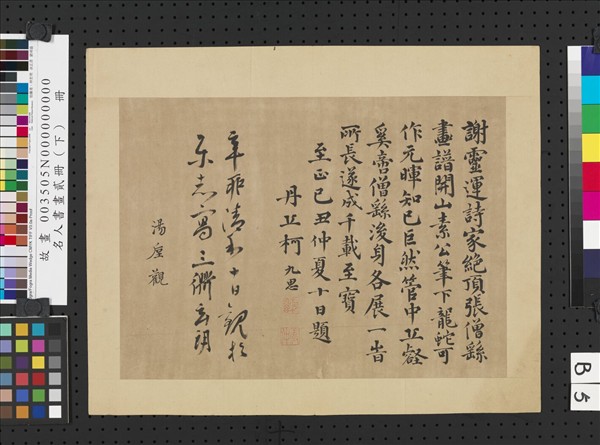 謝靈運詩家絶頂張僧繇
畫譜開山素公筆下龍蛇可
作元暉知已巨然管中丘壑
奚啻僧繇後身各展一皆
所長遂成千載至寶
至正己丑仲夏十日題
丹丘柯九思
辛非清和十日觀於
志寫三
湯垕觀
故畫003505N000000000
名人書畫貳冊（下） 冊
B
5